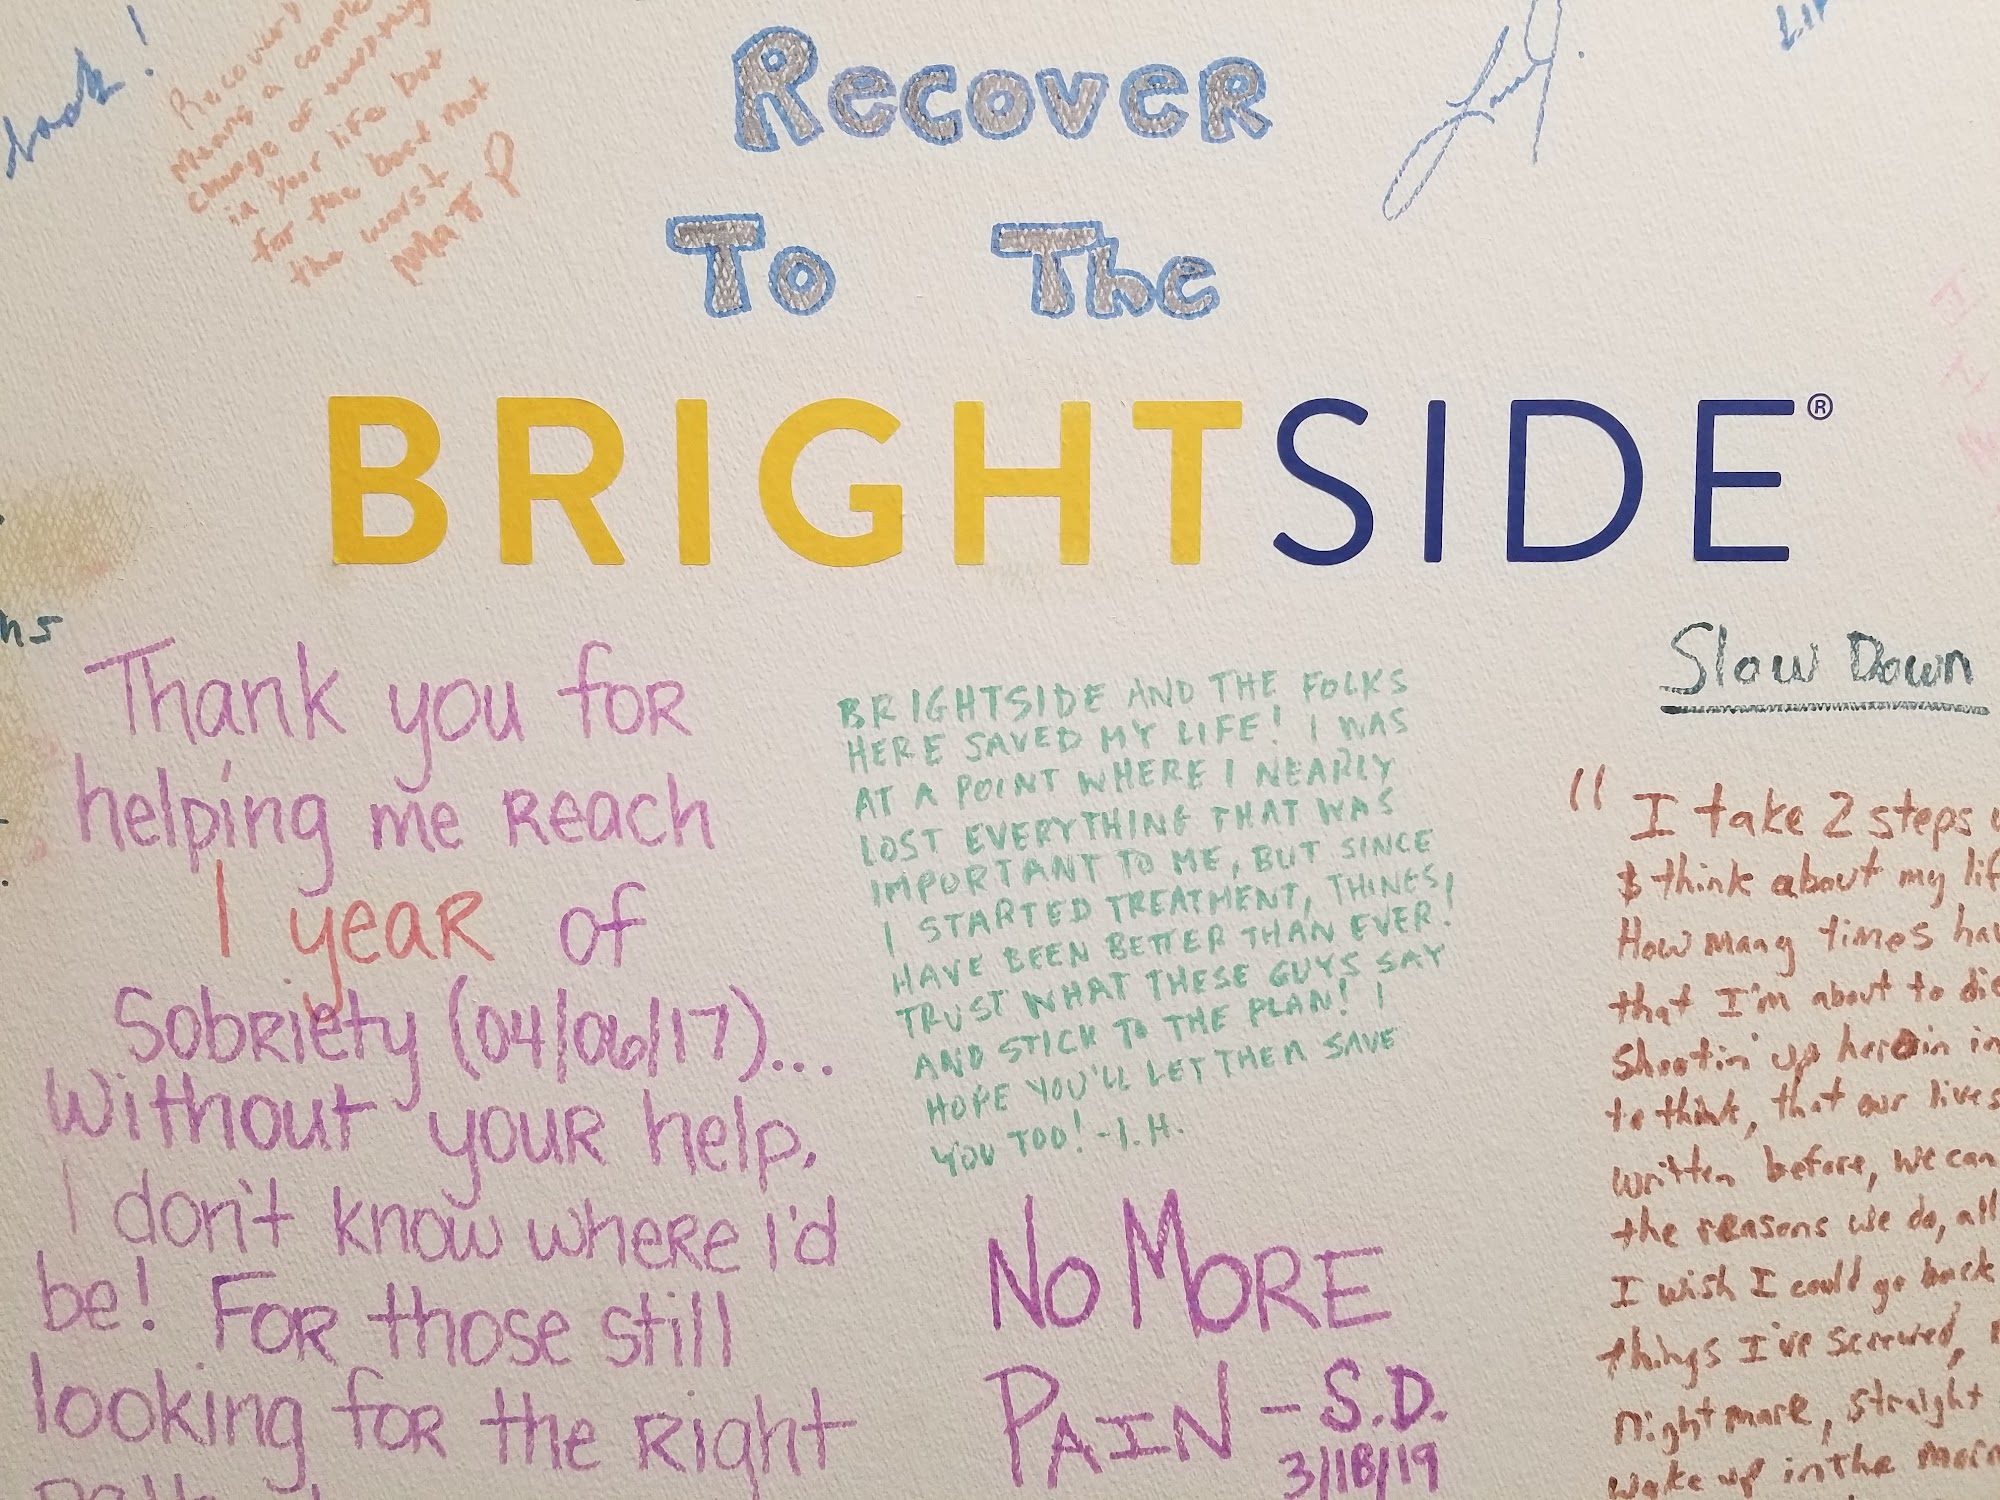 look!
Recovery
Means a
change of
in your life but
for the best not
the worst
Matt P
Recover
To The
BRIGHTSIDE®
Thank you for
helping me reach
1 year of
Sobriety (04/06/17)...
Without your help,
I don't know where I'd
be! For those still
looking for the right
BRIGHTSIDE AND THE FOLKS
HERE SAVED MY LIFE! I WAS
AT A POINT WHERE I NEARLY
LOST EVERYTHING THAT WAS
IMPORTANT TO ME, BUT SINCE
I STARTED TREATMENT, THINGS
HAVE BEEN BETTER THAN EVER!
TRUST WHAT THESE GUYS SAY
AND STICK TO THE PLAN! I
HOPE YOU'LL LET THEM SAVE
YOU TOO! -I.H.
NO MORE
PAIN - S.D.
3/18/19
Slow Down
"I take 2 steps
& think about my
How many times
that I'm about to
Shootin' up heroin in
to think, that our lives
written before, we can
the reasons we do, all
I wish I could go back
things I've screwed,
nightmare, straight
wake up in the